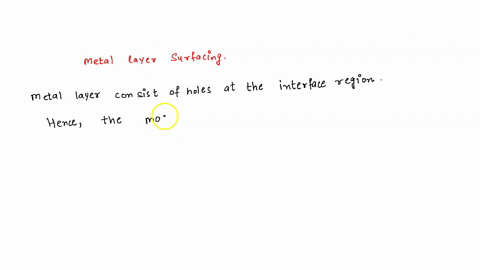 Metal layer Surfacing.
Metal layer consist of holes at the interface region.
Hence, the mo